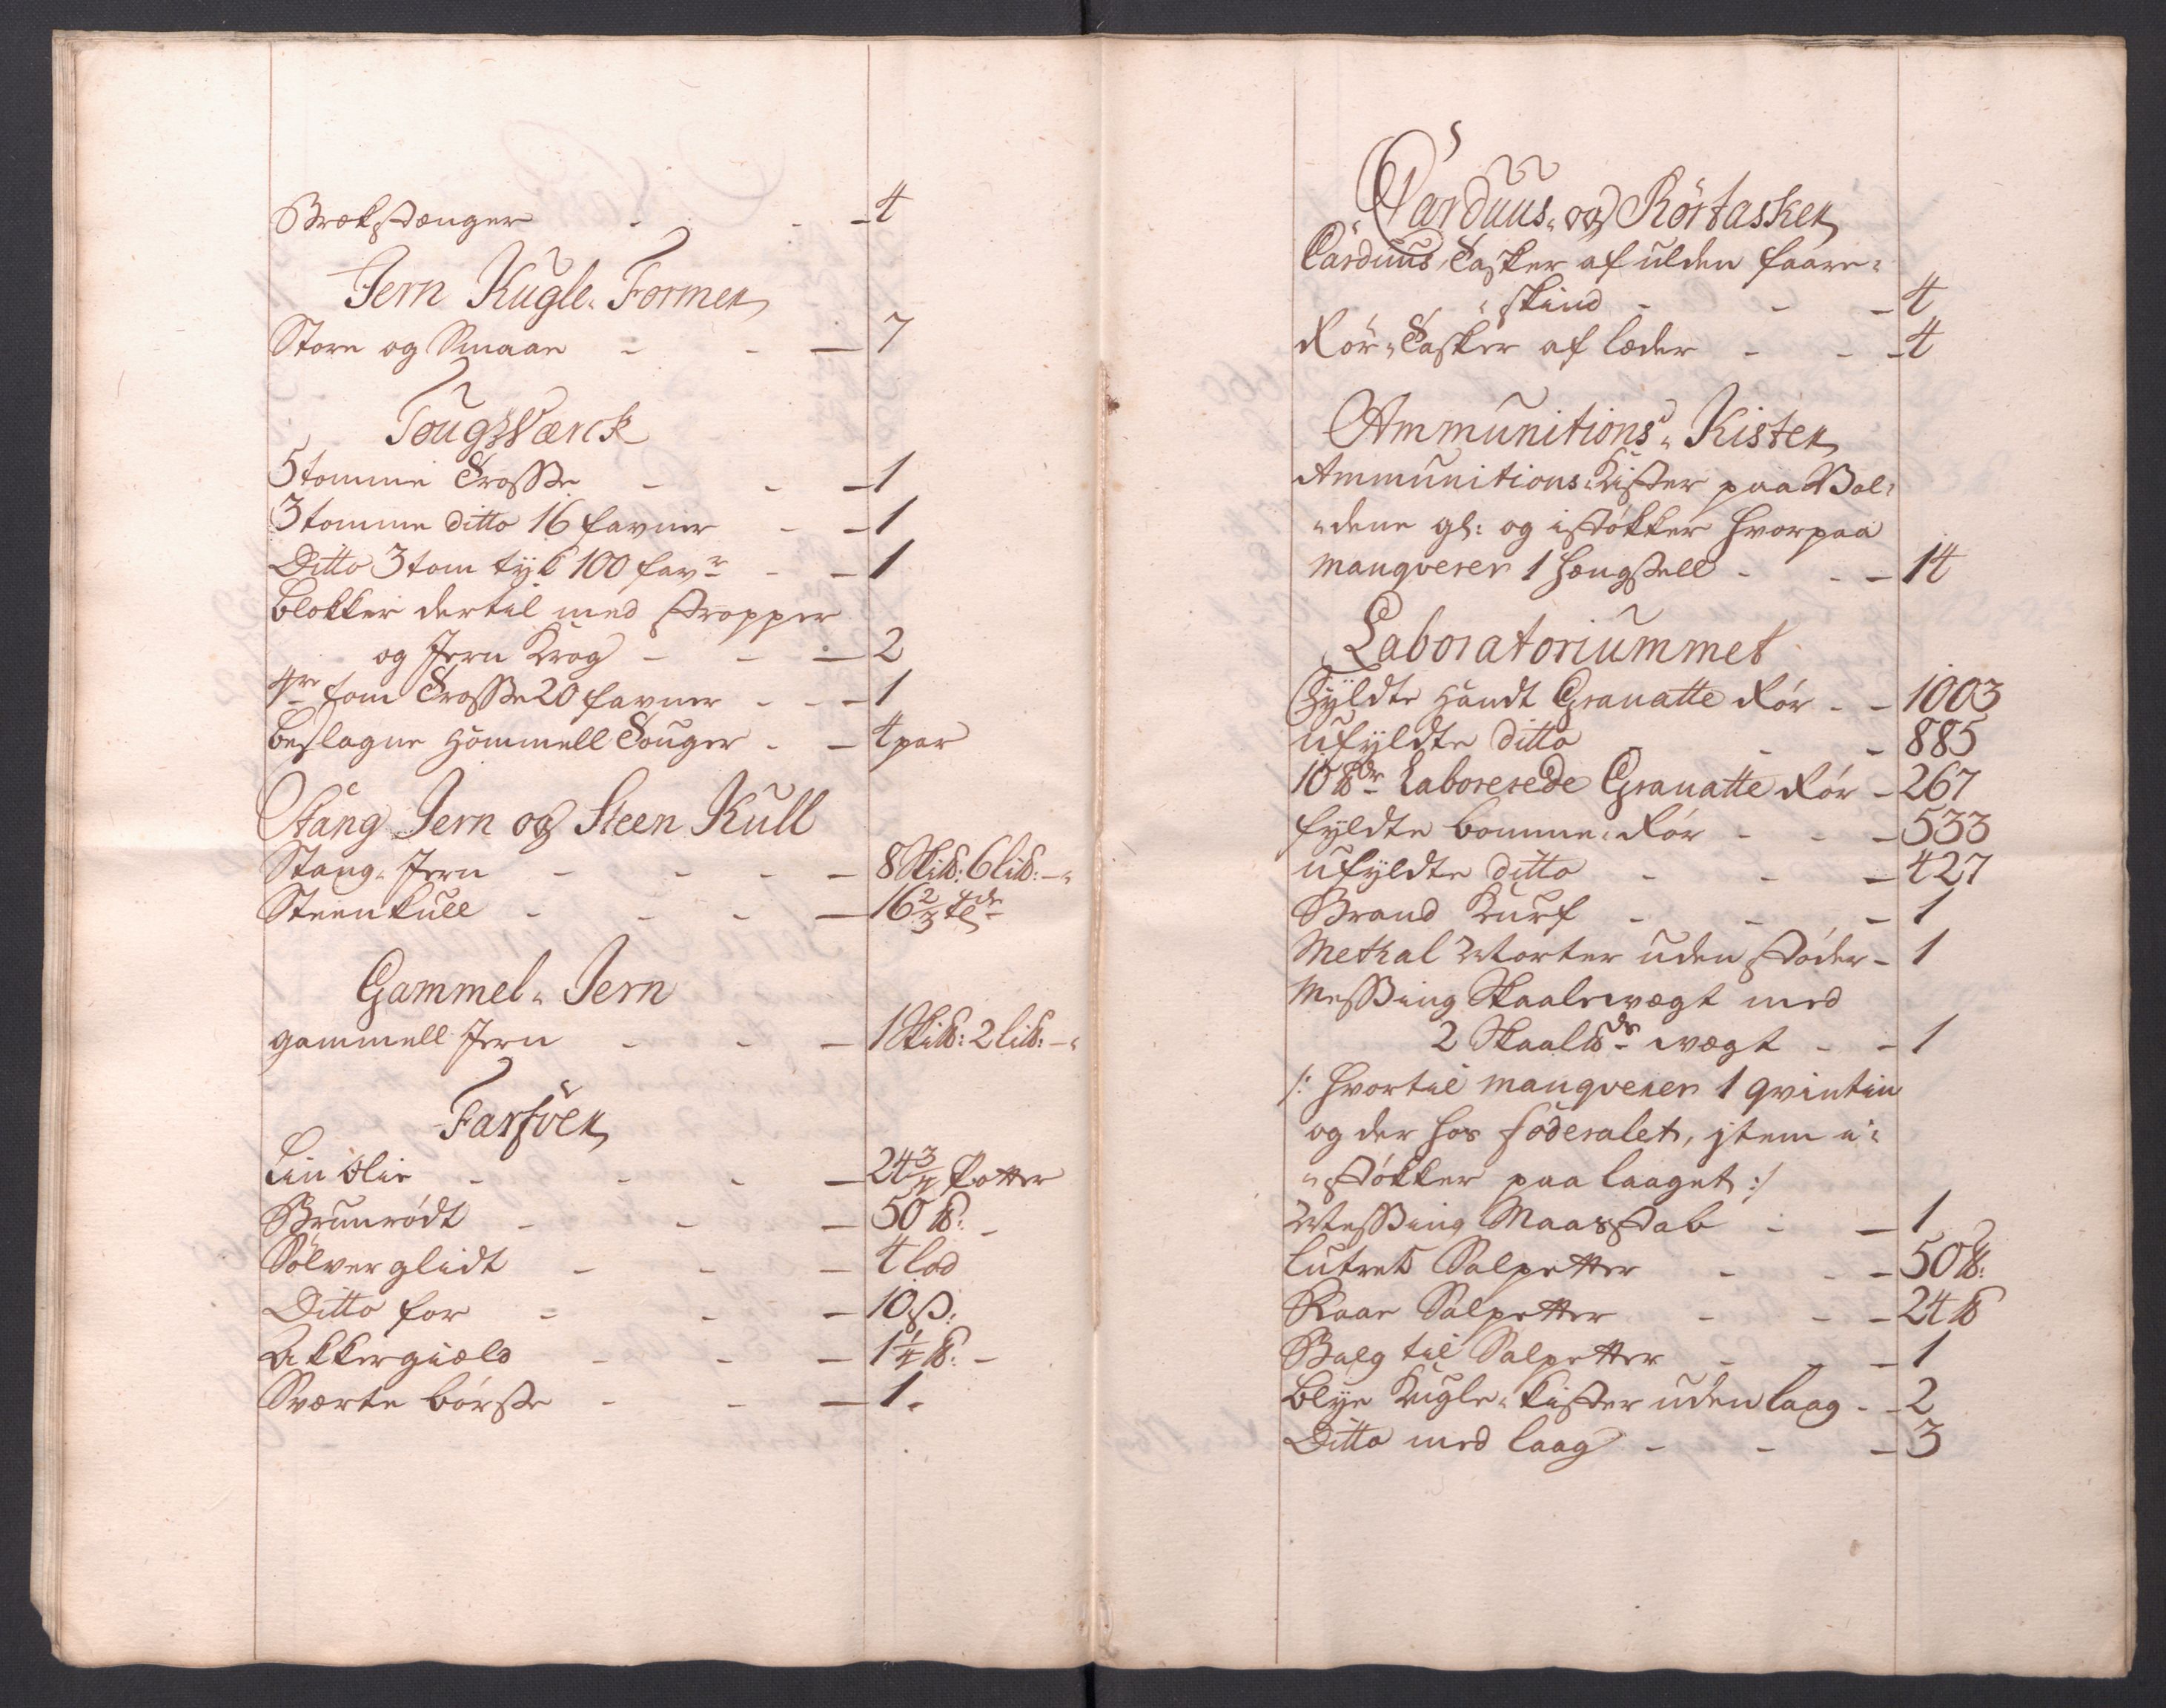 Brækstænger - - - 4
Jern Kugle-Former
Store og Smaae - - - 7
TougsVærck
5 tomme Trosse - - - 1
3 tomme ditto 16 favner - - 1
Ditto 3 tom tyk 100 favr - - 1
blokker dertil med stropper
og Jern Krog - - - 2
4re tom Trosse 20 favner - - - 1
beslagne Hommell Touger - - 4 par
Stang Jern og Steen Kull
Stang-Jern - - - - 8 Sk℔: 6 li℔: -"
Steenkull - - - - 16 2/3 tdr
Gammel-Jern
gammell Jern - - - 1 Sk℔: 2 li℔: -"
Farfver
Lin Olie - - - - 24 3/4 Potter
Brunrødt - - - 50 ℔: -
Sølverglidt - - - 4 lod
Ditto for - - - 10 ß:
Akkergield - - - 1 1/4 ℔: -
Sværte børste - - - 1.
Carduus- og Rörtasker
Carduus Tasker af ulden faare-
-skind - - - 4
Rör-Tasker af læder - - - 4
Ammunitions-Kister
Ammunitions-Kister paa Vol-
-dene gl: og istókker hvorpaa
manqverer 1 hengstell - - - 14
Laboratoriummet
Fyldte Handt Granatte Rör - - 1003
ufyldte ditto - - 885
10 ℔dr Laborerede Granatte Rör - 267
fyldte bomme-Rör - - - 533
ufyldte ditto - - - 427
Brand Kurf - - - 1
Methal Morter uden stöder - 1
Messing Skaalevægt med
2 Skaal℔dr vægt - - 1
/: hvortil manqverer 1 qvintin
og der hos föderalet, jtem i-
-stókker paa laaget :/
Messing Maasstab - - 1
Lutret Salpetter - - - 50 ℔:
Raae Salpetter - - - 24 ℔
Balg til Salpetter - - - 1
Blye Kugle-Kister uden laag - - 2
Ditto med laag - - - 3